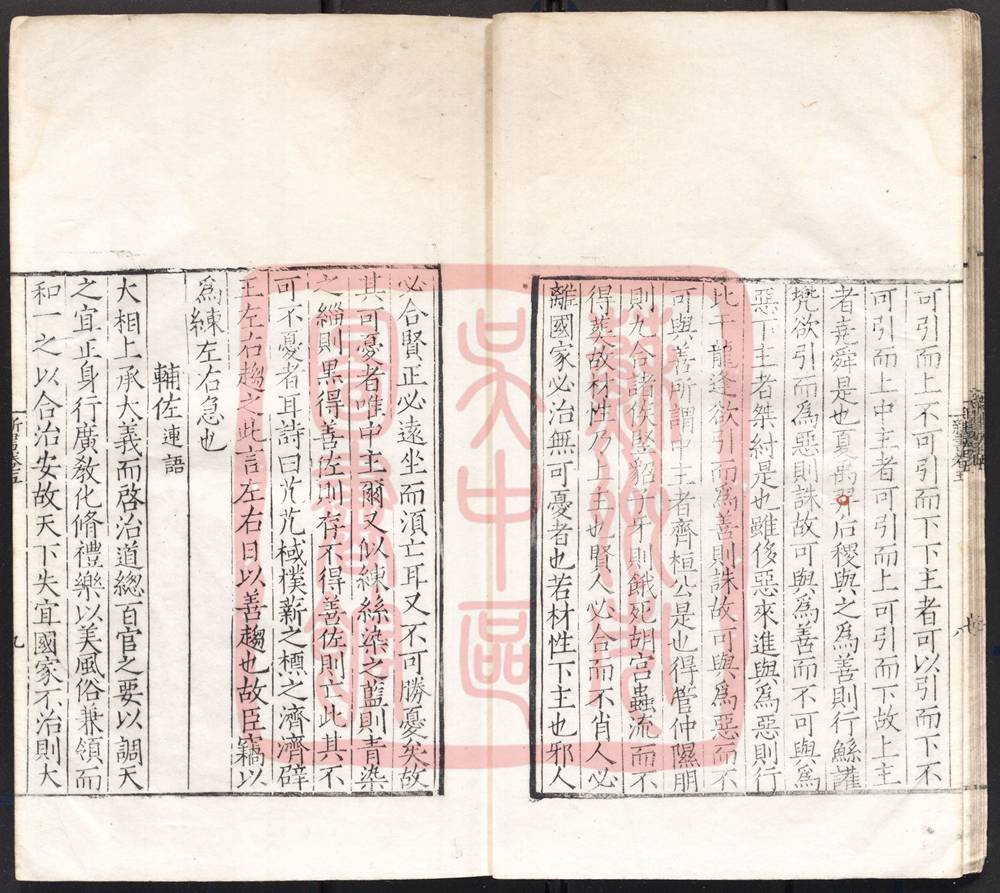 可引而上不可引而下下主者可以引而下不
可引而上中主者可引而上可引而下故上主
者堯舜是也夏禹羿后稷與之為善則行鯀讙
兠欲引而為惡則誅故可與為善而不可與為
惡下主者桀紂是也雖侈惡來進與為惡則行
比干龍逄欲引而為善則誅故可與為惡而不
可與善所謂中主者齊桓公是也得管仲隰朋
則九合諸侯竪貂子牙則餓死胡宫蟲流而不
得葬故材性乃上主也賢人必合而不肖人必
離國家必治無可憂者也若材性下主也邪人
必合賢正必遠坐而湏亡耳又不可勝憂矣故
其可憂者唯中主爾又似練絲染之藍則青染
之緇則黑得善佐則存不得善佐則亡此其不
可不憂者耳詩曰芃芃棫樸薪之槱之濟濟辟
王左右趨之此言左右日以善趨也故臣竊以
為練左右急也
輔佐 連語
大相上承大義而啓治道總百官之要以調天
之宜正身行廣敎化脩禮樂以美風俗兼領而
和一之以合治安故天下失宜國家不治則大
新書卷五
九
蘇州
吳中區
圖書館